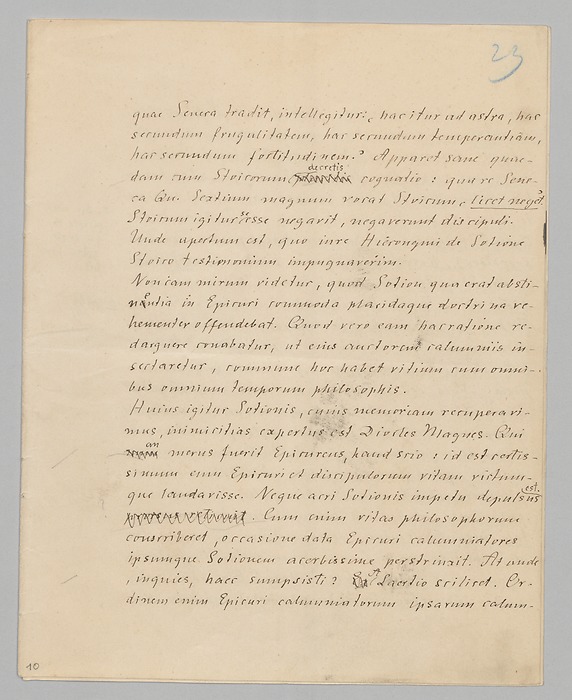 23
quae Seneca tradit, intelleguntur: „hac itur ad astra, hac
secundum frugalitatem, hac secundum temperantiam,
hac secundum fortitudinem.” Apparet sane quae-
dam cum Stoicorum decretis cognatio: quare Sene-
ca Qu. Sextium magnum vocat Stoicum, licet neget.
Stoicum igitur se esse negavit, negaverunt discipuli.
Unde apertum est, quo iure Hieronymi de Sotione
Stoico testimonium impugnaverim.
Non iam mirum videtur, quod Sotion qua erat absti-
nentia in Epicuri commoda placidaque doctrina ve-
hementer offendebat. Quod vero eam hac ratione re-
darguere conabatur, ut eius auctorem calumniis in-
sectaretur, commune hoc habet vitium cum omni-
bus omnium temporum philosophis.
Huius igitur Sotionis, cuius memoriam recuperavi-
mus, inimicitias expertus est Diocles Magnes. Qui
an merus fuerit Epicureus, haud scio: id est certis-
simum eum Epicuri et discipulorum vitam victum-
que laudavisse. Neque acri Sotionis impetu depulsus est.
Cum enim vitas philosophorum
conscriberet, occasione data Epicuri calumniatores
ipsumque Sotionem acerbissime perstrinxit. At unde
, inquies, haec sumpsisti? A Laertio scilicet. Or-
dinem enim Epicuri calumniatorum ipsarum calum-
10